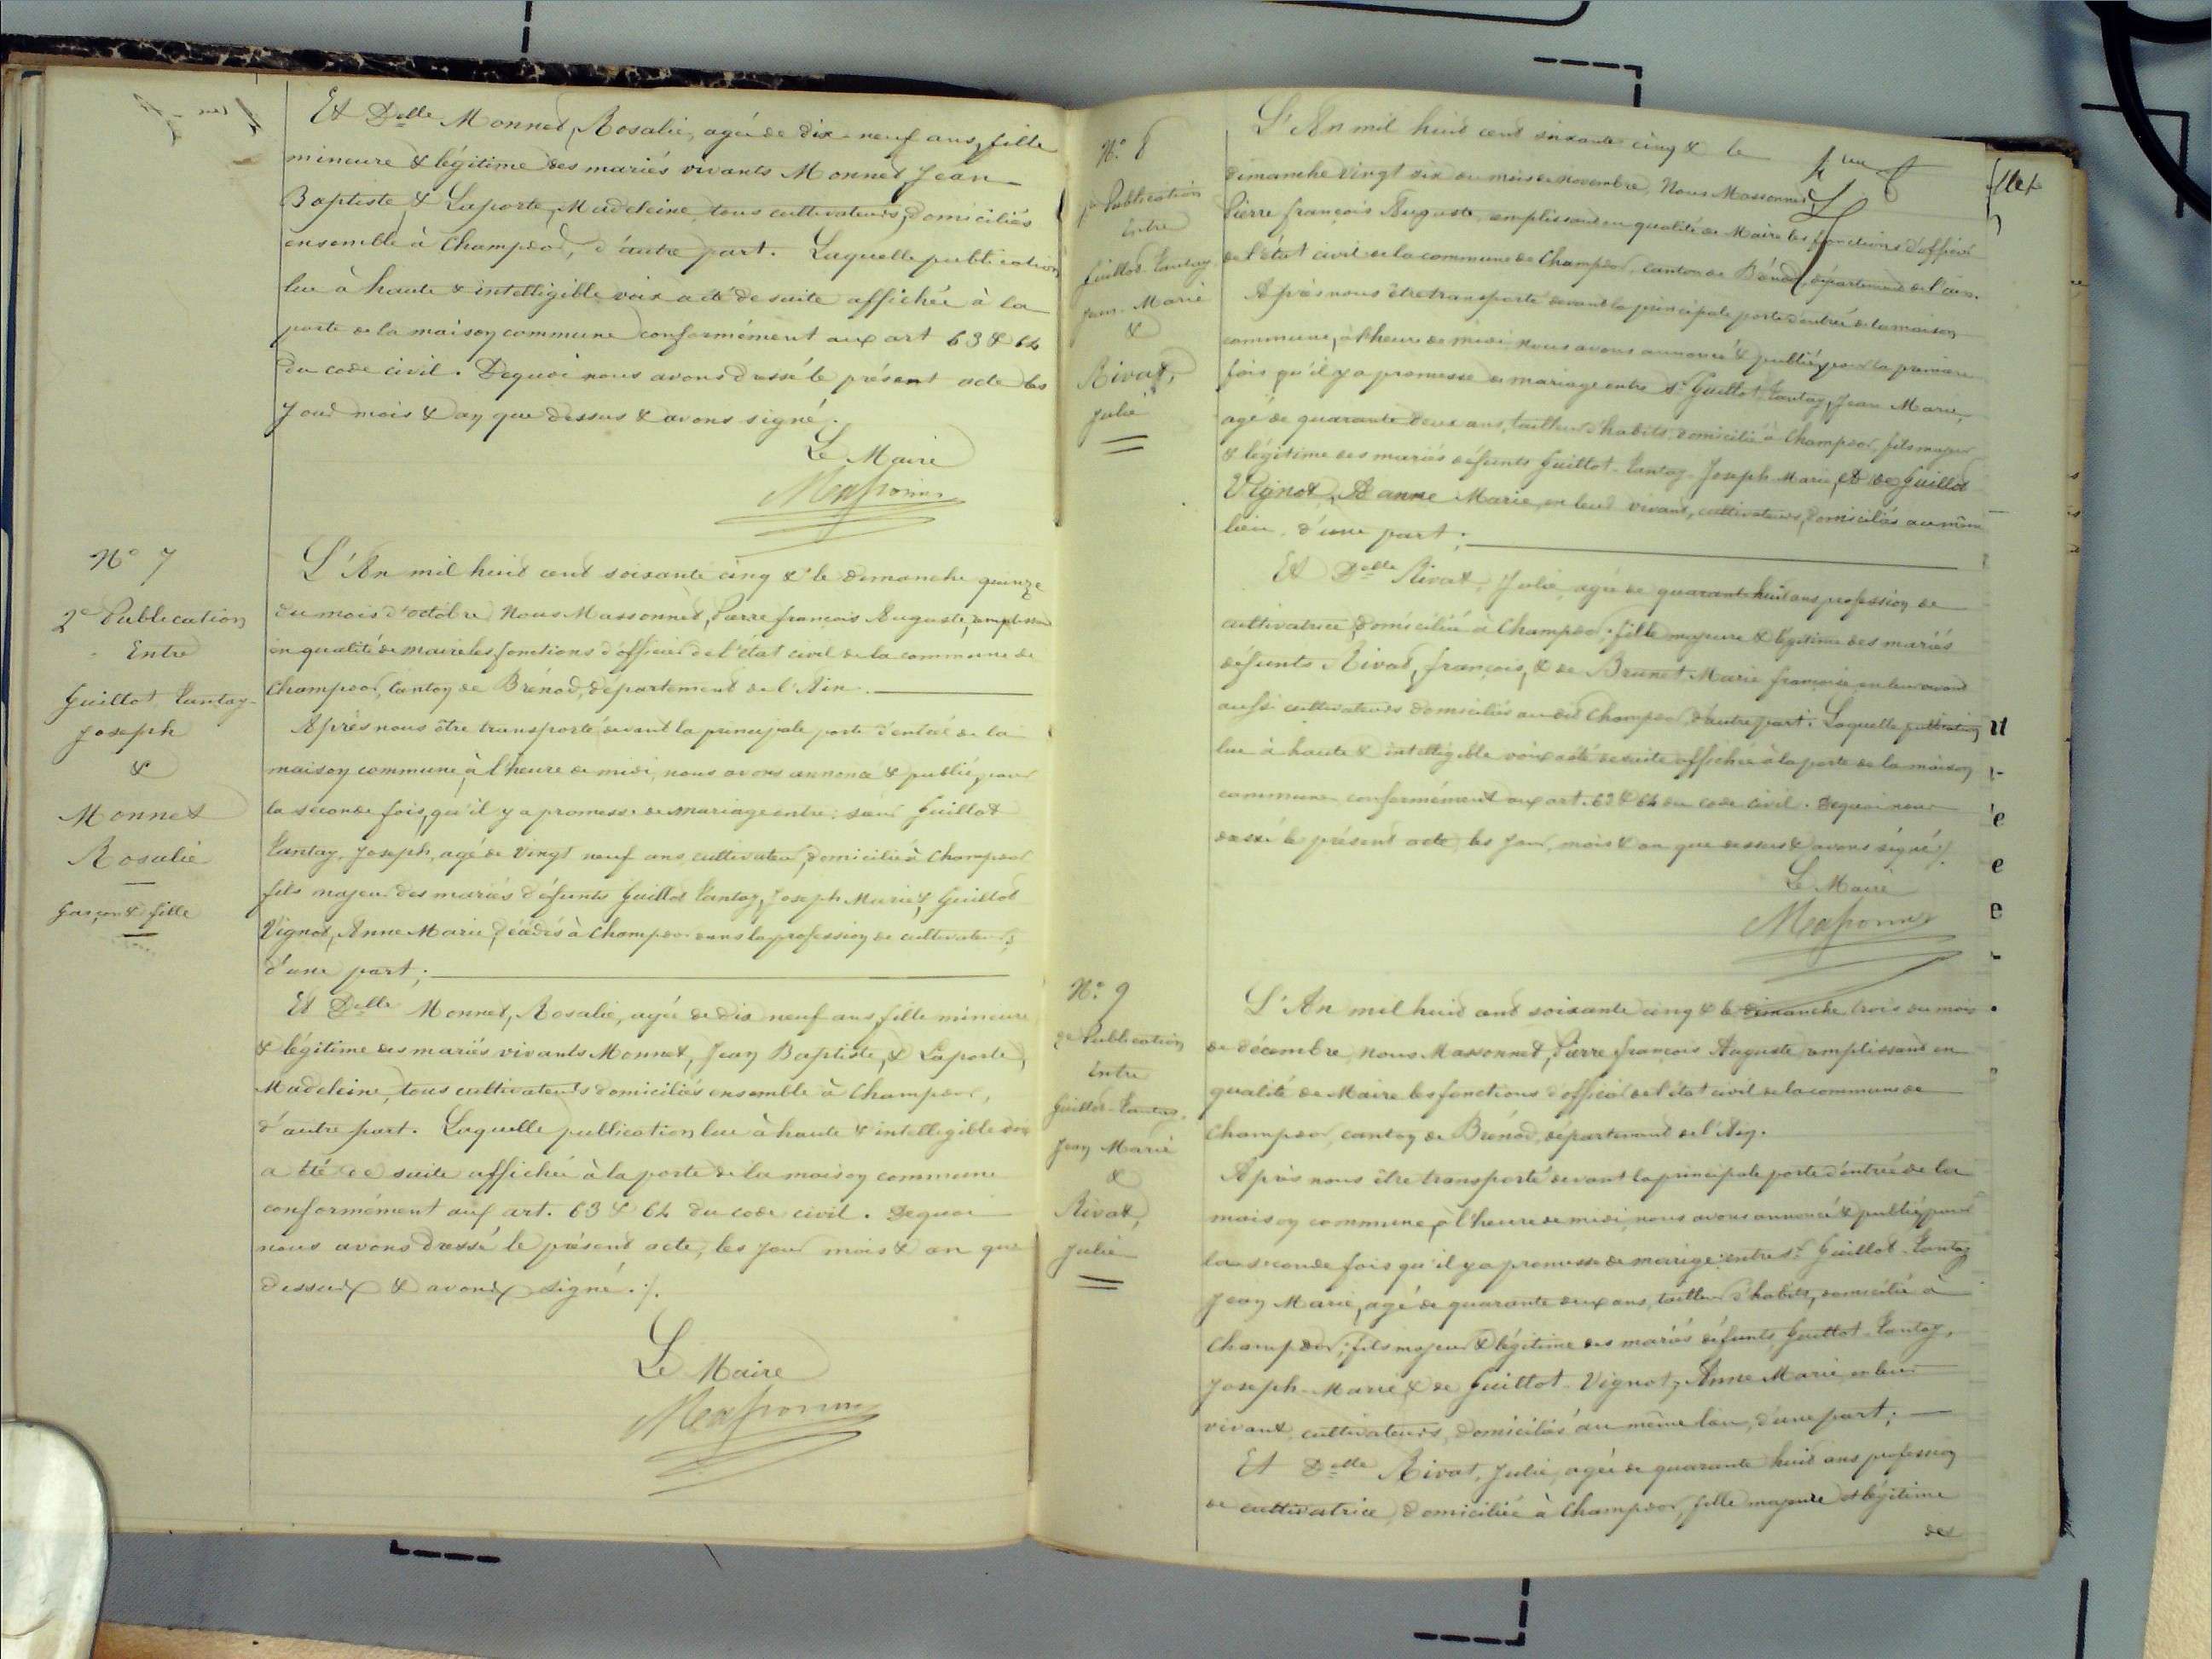 Et Delle Monnet, Rosalie, agée de dix-neuf ans, fille
mineure & légitime des mariés vivants Monnet, Jean
Baptiste, & Laporte, Madeleine, tous cultivateurs, domiciliés
ensemble à Champdor, d'autre part. Laquelle publication
lue à haute & intelligible voix a été de suite affichée à la
porte de la maison commune conformément aux art 63 & 64
du code civil. Dequoi nous avons dressé le présent acte les
jour mois & an que dessus & avons signé.
Le Maire
Massonnet
No 7
2e Publication
Entre
Guillot Tantay
Joseph
&
Monnet
Rosalie
Garçon & fille
L'An mil huit cent soixante cinq & le dimanche quinze
du mois d'octobre Nous Massonnet, Pierre françois Auguste, remplissant
en qualité de maire les fonctions d'officier de l'état civil de la commune de
Champdor, canton de Brénod, département de l'Ain.
Après nous être transporté devant la principale porte d'entrée de la
maison commune, à l'heure de midi, nous avons annoncé & publié, pour
la seconde fois, qu'il y a promesse de mariage entre: sieur Guillot
Tantay, Joseph, agé de vingt neuf ans, cultivateur, domicilié à Champdor
fils majeur des mariés défunts Guillot Tantay, Joseph Marie, & Guillot
Vignot, Anne Marie, décédés à Champdor dans la profession de cultivateurs;
d'une part;
Et Delle Monnet, Rosalie, agée de dix neuf ans, fille mineure
& légitime des mariés vivants Monnet, Jean Baptiste, & Laporte,
Madeleine, tous cultivateurs domiciliés ensemble à Champdor,
d'autre part. Laquelle publication lue à haute & intelligible voix
a été de suite affichée à la porte de la maison commune
conformément aux art. 63 & 64 du code civil. Dequoi
nous avons dressé le présent acte, les jour mois & an que
dessus & avons signé ./.
Le Maire
Massonnet
No. 8
1re Publication
Entre
Guillot-Tantay
Jean-Marie
&
Rivat,
Julie
L'An mil huit cent soixante cinq & le
dimanche vingt six du mois de novembre, Nous Massonnet,
Pierre françois Auguste, remplissant en qualité de Maire les fonctions d'officier
de l'état civil de la commune de Champdor, canton de Brénod, département de l'ain.
Après nous être transporté devant la principale porte d'entrée de la maison
commune, à l'heure de midi nous avons annoncé & publié pour la première
fois qu'il y a promesse de mariage entre Sr Guillot-Tantay, Jean Marie,
agé de quarante deux ans, tailleur d'habits, domicilié à Champdor, fils majeur
& légitime des mariés défunts Guillot-Tantay Joseph Marie, et de Guillot
Vignot, Anne Marie, en leur vivant, cultivateurs, domiciliés au même
lieu, d'une part;
Et Delle Rivat, Julie, agée de quarante-huit ans profession de
cultivatrice, domiciliée à Champdor; fille majeure & légitime des mariés
défunts Rivat, françois, & de Brunet Marie françoise en leur vivant
aussi cultivateurs domiciliés au dit Champdor, d'autre part. Laquelle publication
lue à haute & intelligible voix a été de suite affichée à la porte de la maison
commune, conformément aux art. 63 & 64 du code civil. Dequoi nous
dressé le présent acte, les jour, mois & an que dessus & avons signé ./.
Le Maire
Massonnet
No. 9
2e Publication
Entre
Guillot-Tantay.
Jean Marie
&
Rivat,
Julie
L'An mil huit cent soixante cinq & le dimanche trois du mois
de décembre, nous Massonnet, Pierre françois Auguste, remplissant en
qualité de Maire les fonctions d'officier de l'état civil de la commune de
Champdor, canton de Brénod, département de l'Ain.
Après nous être transporté devant la principale porte d'entrée de la
maison commune, à l'heure de midi, nous avons annoncé & publié, pour
la seconde fois qu'il y a promesse de mariage entre Sr Guillot-Tantay
Jean Marie, agé de quarante deux ans, tailleur d'habits, domicilié à
Champdor; fils majeur & légitime des mariés défunts, Guillot-Tantay,
Joseph-Marie, & de Guillot-Vignot, Anne Marie, en leur
vivant, cultivateurs, domiciliés au même lieu, d'une part;
Et Delle Rivat, Julie, agée de quarante huit ans profession
de cultivatrice, domiciliée à Champdor, fille majeure & légitime
des